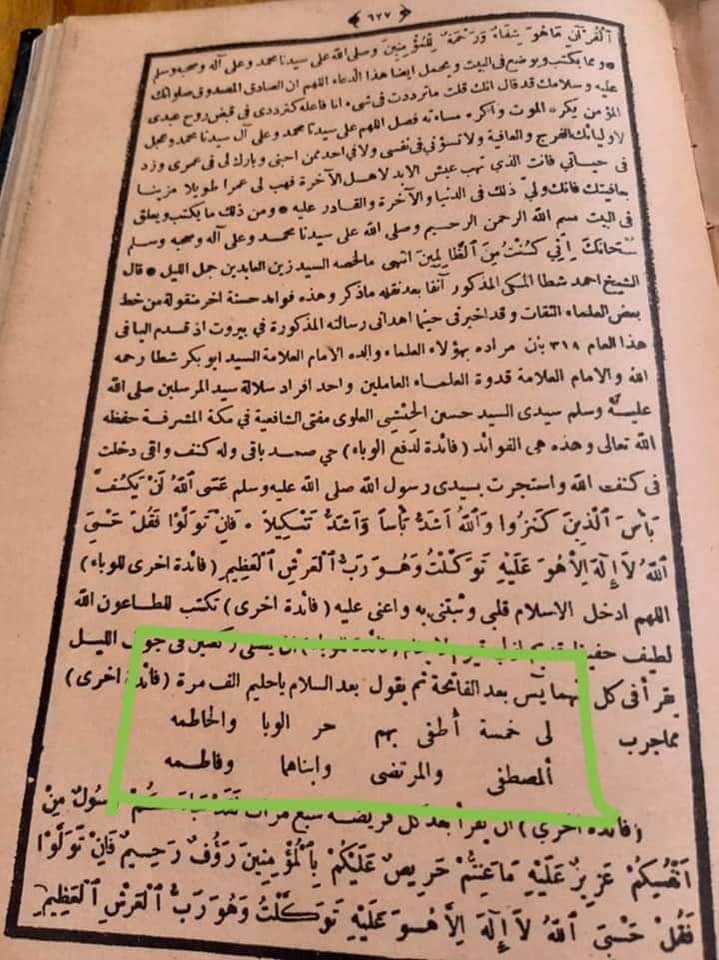 ﴿ ٦٢٧ ﴾
اَلْقُرْآنِ مَا هُوَ شِفَاءٌ وَرَحْمَةٌ لِلْمُؤْمِنِينَ وصلى الله على سيدنا محمد وعلى آله وصحبه وسلم
* ومما يكتب ويوضع فى البيت ويحمل ايضا هذا الدعاء اللهم ان الصادق المصدوق صلواتك
عليه وسلامك قد قال انك قلت ما ترددت فى شىء انا فاعله كترددى فى قبض روح عبدى
المؤمن يكره الموت واكره مساءته فصل اللهم على سيدنا محمد وعلى آل سيدنا محمد وعجل
لاوليائك الفرج والعافية ولا تسؤنى فى نفسى ولا فى احد ممن احبنى وبارك لى فى عمرى وزد
فى حياتى فانت الذي تهب عيش الابد لاهل الآخرة فهب لى عمرا طويلا مزينا
بعافيتك فانك ولي ذلك فى الدنيا والآخرة والقادر عليه * ومن ذلك ما يكتب ويعلق
فى البيت بسم الله الرحمن الرحيم وصلى الله على سيدنا محمد وعلى آله وصحبه وسلم
سُبْحَانَكَ اِنِّي كُنْتُ مِنَ اَلظَّالِمِينَ انتهى ما لخصه السيد زين العابدين جمل الليل * قال
الشيخ احمد شطا المكى المذكور آنفا بعد نقله ماذكر وهذه فوائد حسنة اخر منقولة من خط
بعض العلماء الثقات وقد اخبرنى حينما اهدانى رسالته المذكورة في بيروت اذ قدم اليها فى
هذا العام ٣١٨ بأن مراده بهؤلاء العلماء والده الامام العلامة السيد ابو بكر شطا رحمه
الله والامام العلامة قدوة العلماء العاملين واحد افراد سلالة سيد المرسلين صلى الله
عليه وسلم سيدى السيد حسين الحِبْشِي العلوى مفتى الشافعية في مكة المشرفة حفظه
الله تعالى وهذه هى الفوائد ( فائدة لدفع الوباء ) حي صمد باقى وله كنف واقى دخلت
فى كنف الله واستجرت بسيدى رسول الله صلى الله عليه وسلم عَسَى اَللّٰهُ اَنْ يَكُفَّ
بَأْسَ اَلَّذِينَ كَفَرُوا وَاَللّٰهُ اَشَدُّ بَأْساً وَاَشَدُّ تَنْكِيلاً * فَاِنْ تَوَلَّوْا فَقُلْ حَسْبِيَ
اَللّٰهُ لاَ اِلٰهَ اِلاَّ هُوَ عَلَيْهِ تَوَكَّلْتُ وَهُوَ رَبُّ اَلْعَرْشِ اَلْعَظِيمِ ( فائدة اخرى للوباء )
اللهم ادخل الاسلام قلبى وثبتنى به واعنى عليه ( فائدة اخرى ) تكتب للطاعون الله
لطيف حفيظ قديم ازلى قيوم لا ينام ( فائدة للوباء ) ان يصلى ركعتين فى جوف الليل
يقرأ فى كل منهما يٓس بعد الفاتحة ثم يقول بعد السلام ياحليم الف مرة ( فائدة اخرى )
مما جرب
لى خمسة أطفى بهم حر الوبا والحاطمه
المصطفى والمرتضى وابناهما وفاطمه
( فائدة اخرى ) ان يقرأ بعد كل فريضة سبع مرات لَقَدْ جَاءَكُمْ رَسُولٌ مِنْ
اَنْفُسِكُمْ عَزِيزٌ عَلَيْهِ مَا عَنِتُّمْ حَرِيصٌ عَلَيْكُمْ بِالْمُؤْمِنِينَ رَؤُفٌ رَحِيمٌ فَاِنْ تَوَلَّوْا
فَقُلْ حَسْبِيَ اَللّٰهُ لاَ اِلٰهَ اِلاَّ هُوَ عَلَيْهِ تَوَكَّلْتُ وَهُوَ رَبُّ اَلْعَرْشِ اَلْعَظِيمِ